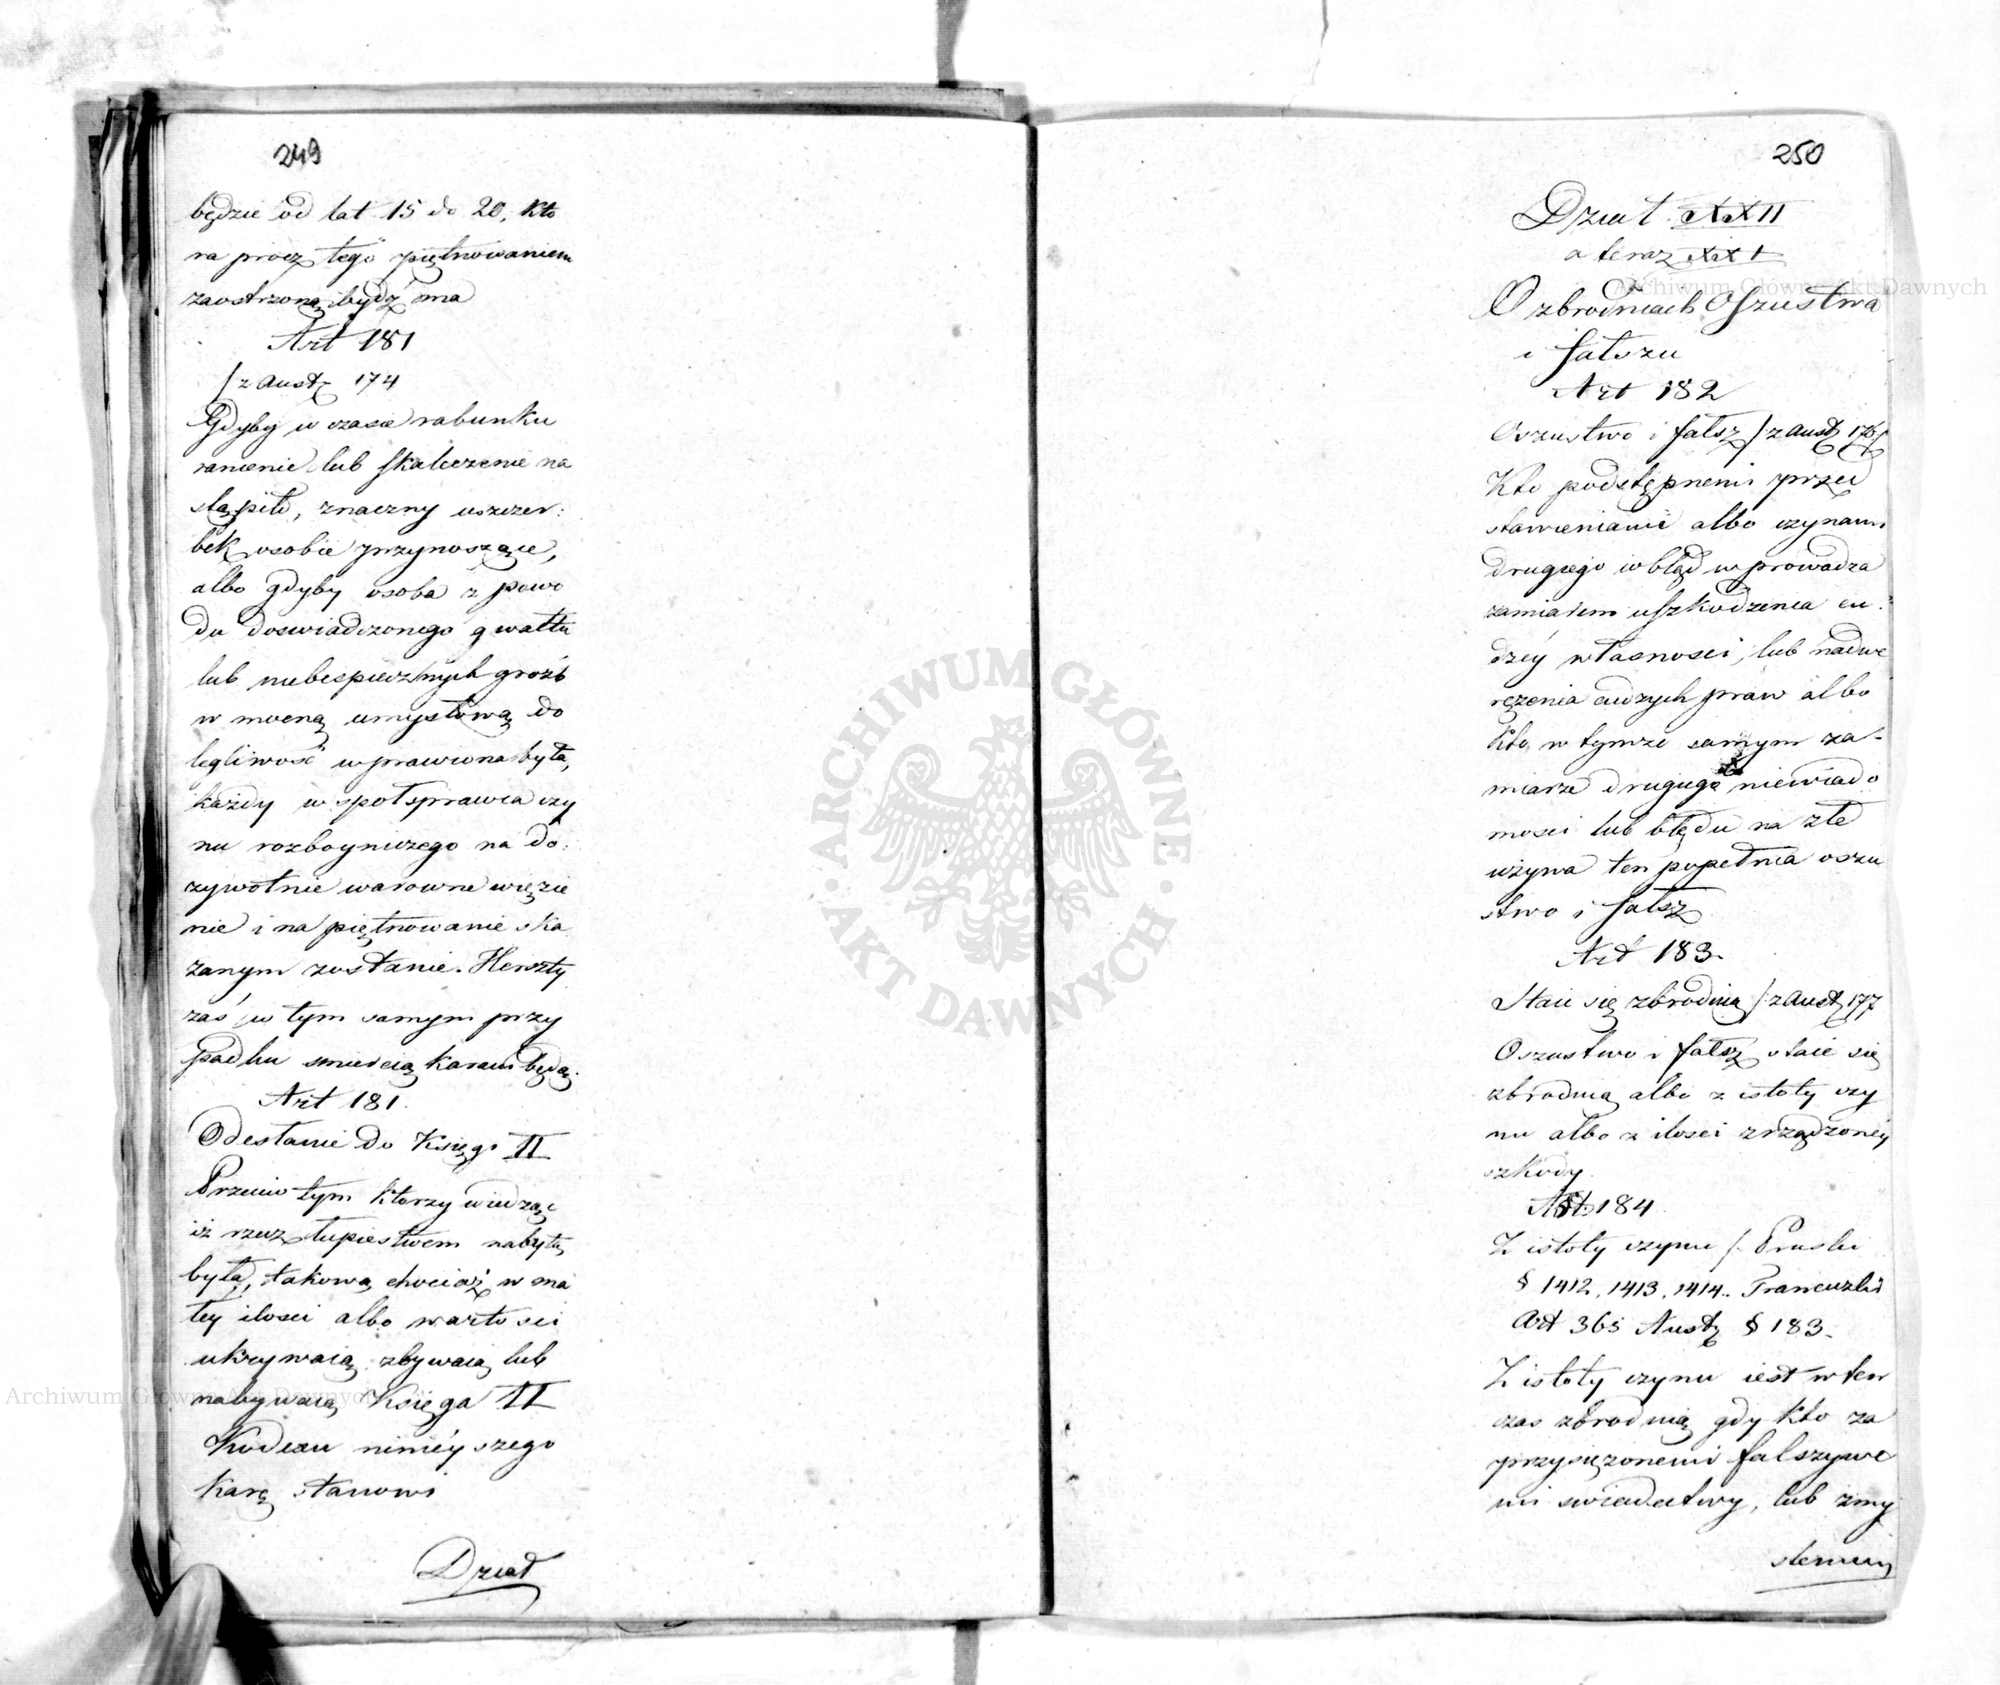 249
będzie od lat 15 do 20, któ
ra procz tego piętnowaniem
zaostrzoną bydź ma
Art 181
/ z Austr 174
Gdyby w czasie rabunku
ranienie lub skaleczenie na
stąpiło, znaczny uszczer:
bek osobie przynoszące,
albo gdyby osoba z powo
du doswiadczonego gwałtu
lub niebespiecznych groźb
w mocną umysłową do
legliwość wprawiona była,
każdy wspołsprawca czy
nu rozboyniczego na do:
zywotnie warowne więzie
nie i na piętnowanie ska
zanym zostanie. Herszty
zaś w tym samym przy
padku smiercią karani będą.
Art 181.
Odesłanie do Księgi II
Przeciw tym ktorzy wiedząc
iż rzecz łupiestwem nabytą
była, takową chociaż w ma
łey ilosci albo wartosci
ukrywaią, zbywaią lub
nabywaią Księga II
Kodexu ninieyszego
karę stanowi
Dział
250
Dział XXII
a teraz XXI
O zbrodniach Oszustwa
i fałszu
Art 182
Oszustwo i fałsz /: z Austr 176/
Kto podstępnemi przed
stawieniami albo czynami
drugiego w błąd wprowadza
zamiarem uszkodzenia cu:
dzéy własnosci, lub nadwe
rężenia cudzych praw albo
kto w tymże samym za-
miarze drugiego niewiado
mosci lub błędu na złe
używa ten popełnia oszu
stwo i fałsz
Art 183.
Staie się zbrodnią /: z Austr 177
Oszustwo i fałsz staie się
zbrodnią albo z istoty czy
nu albo z ilosci zrządzoney
szkody.
Art. 184
Z istoty czynu /. Pruski
§ 1412, 1413, 1414. Francuzki
Art 365 Austr § 183.
Z istoty czynu iest w ten
czas zbrodnią gdy kto za
przysiężonemi fałszywe
mi swiadectwy, lub zmy
slonemi
ARCHIWUM GŁÓWNE
AKT DAWNYCH
Archiwum Główne Akt Dawnych
Archiwum Główne Akt Dawnych